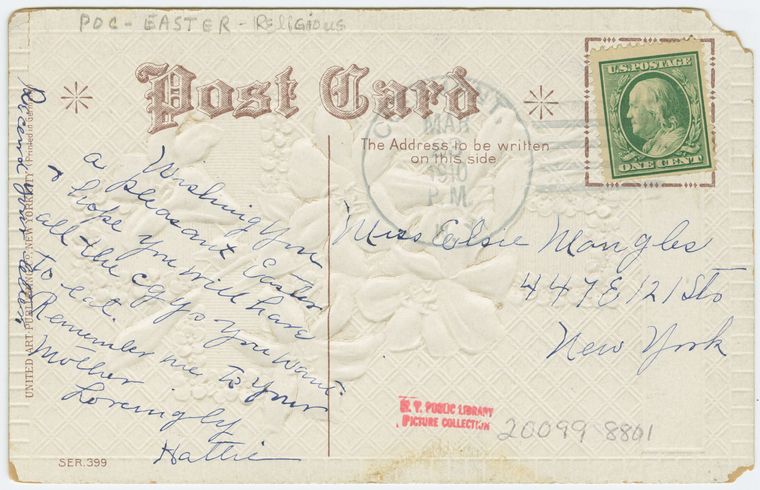 POC - EASTER - Religious
Post Card
The Address to be written
on this side
U.S. POSTAGE
ONE CENT
MAR
1910
P.M
Received your letter
UNITED ART PUBLISHING CO. NEW YORK CITY (Printed in Germ
Wishing you
a pleasant Easter
& hope you will have
all the eggs you want
to eat.
Remember me to your
Mother
Lovingly
Hattie
Miss Elsie Mangles
447 E 121 St
New York
N. Y. PUBLIC LIBRARY
PICTURE COLLECTION
20099 8801
SER. 399